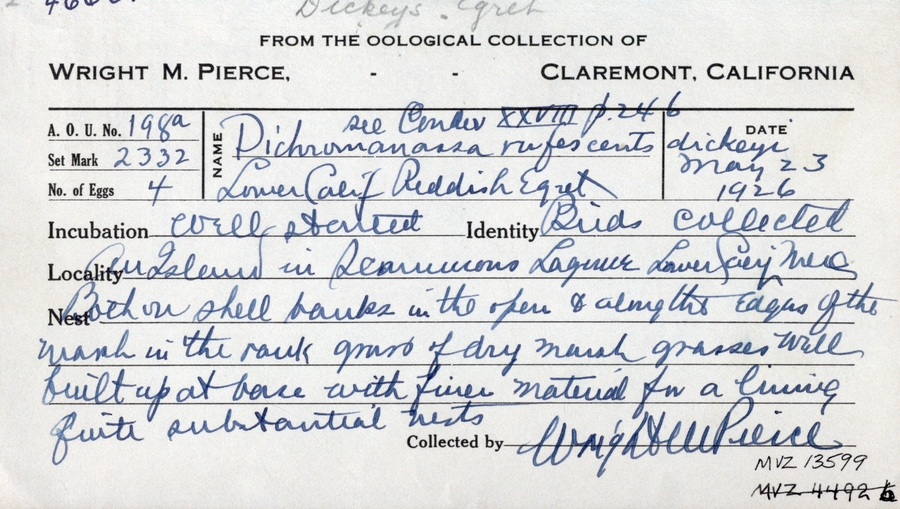 Dickeys Egret
FROM THE OOLOGICAL COLLECTION OF
WRIGHT M. PIERCE, - - CLAREMONT, CALIFORNIA
see Condor XXVIII p. 246
A. O. U. No. 198a
NAME
Dichromanassa rufescents dickeyi
DATE
Set Mark 2332
May 23
1926
No. of Eggs 4
Lower Calif Reddish Egret
Incubation Well started Identity Birds collected
Locality On Island in Scammons Lagune Lower Calif Mex
Nest Both on shell banks in the open & along the Edges of the
marsh in the rank grass of dry marsh grasses Well
built up at base with finer material for a lining
quite substantial nests
Collected by Wright M Pierce
MVZ 13599
MVZ 4492